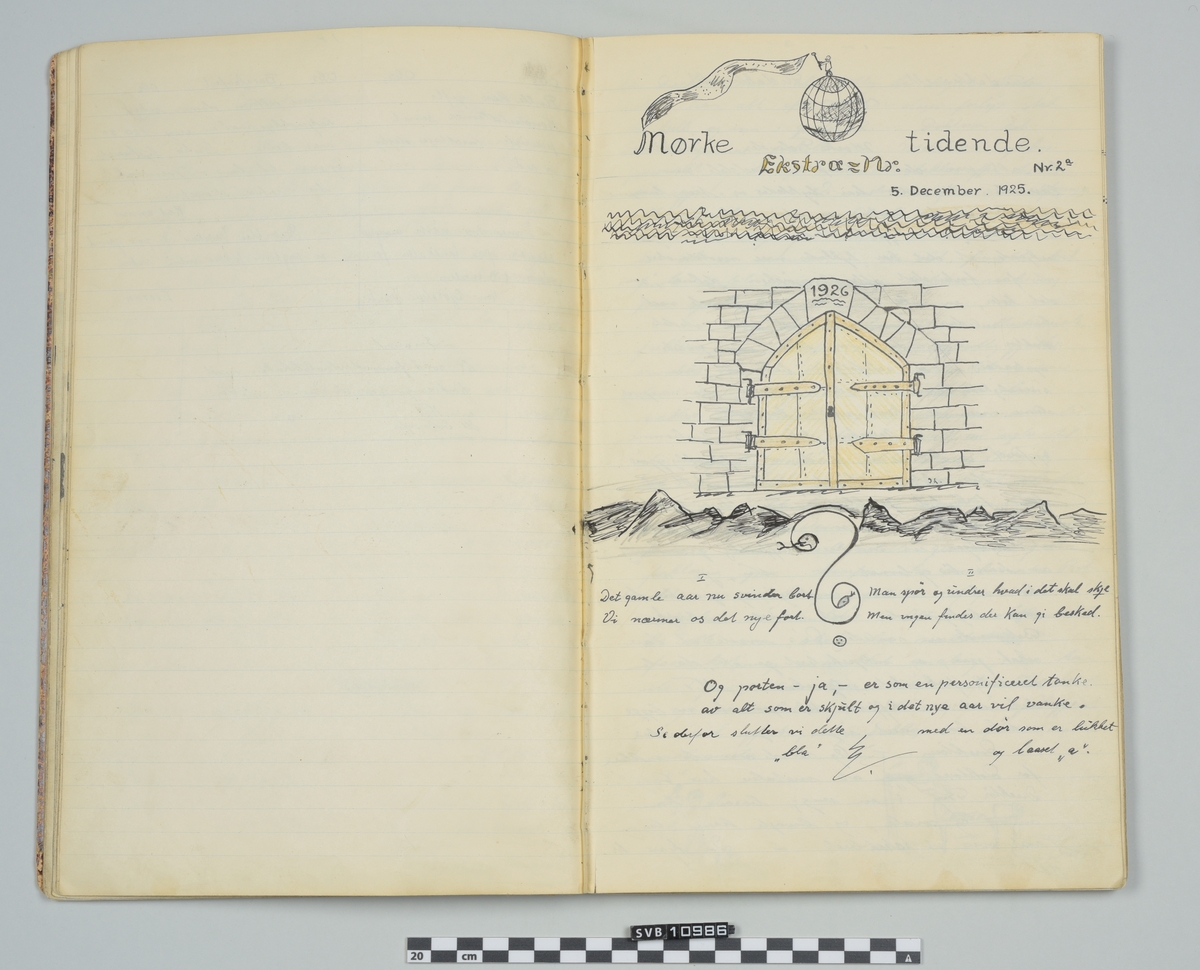 Mørke tidende.
Ekstra=Nr.
Nr. 2a
5. December. 1925.
1926
I
Det gamle aar nu svinder bort
Vi nærmer os det nye fort.
II
Man spör og undrer hvad i det skal skje
Men ingen findes der kan gi beskad.
Og porten – ja, – er som en personificeret tanke.
av alt som er skjult og i det nya aar vil vanke.
Se derfor slutter vi dette med en dör som er lukket
„bla" og laaset „a".
SVB 10986
20 cm
A